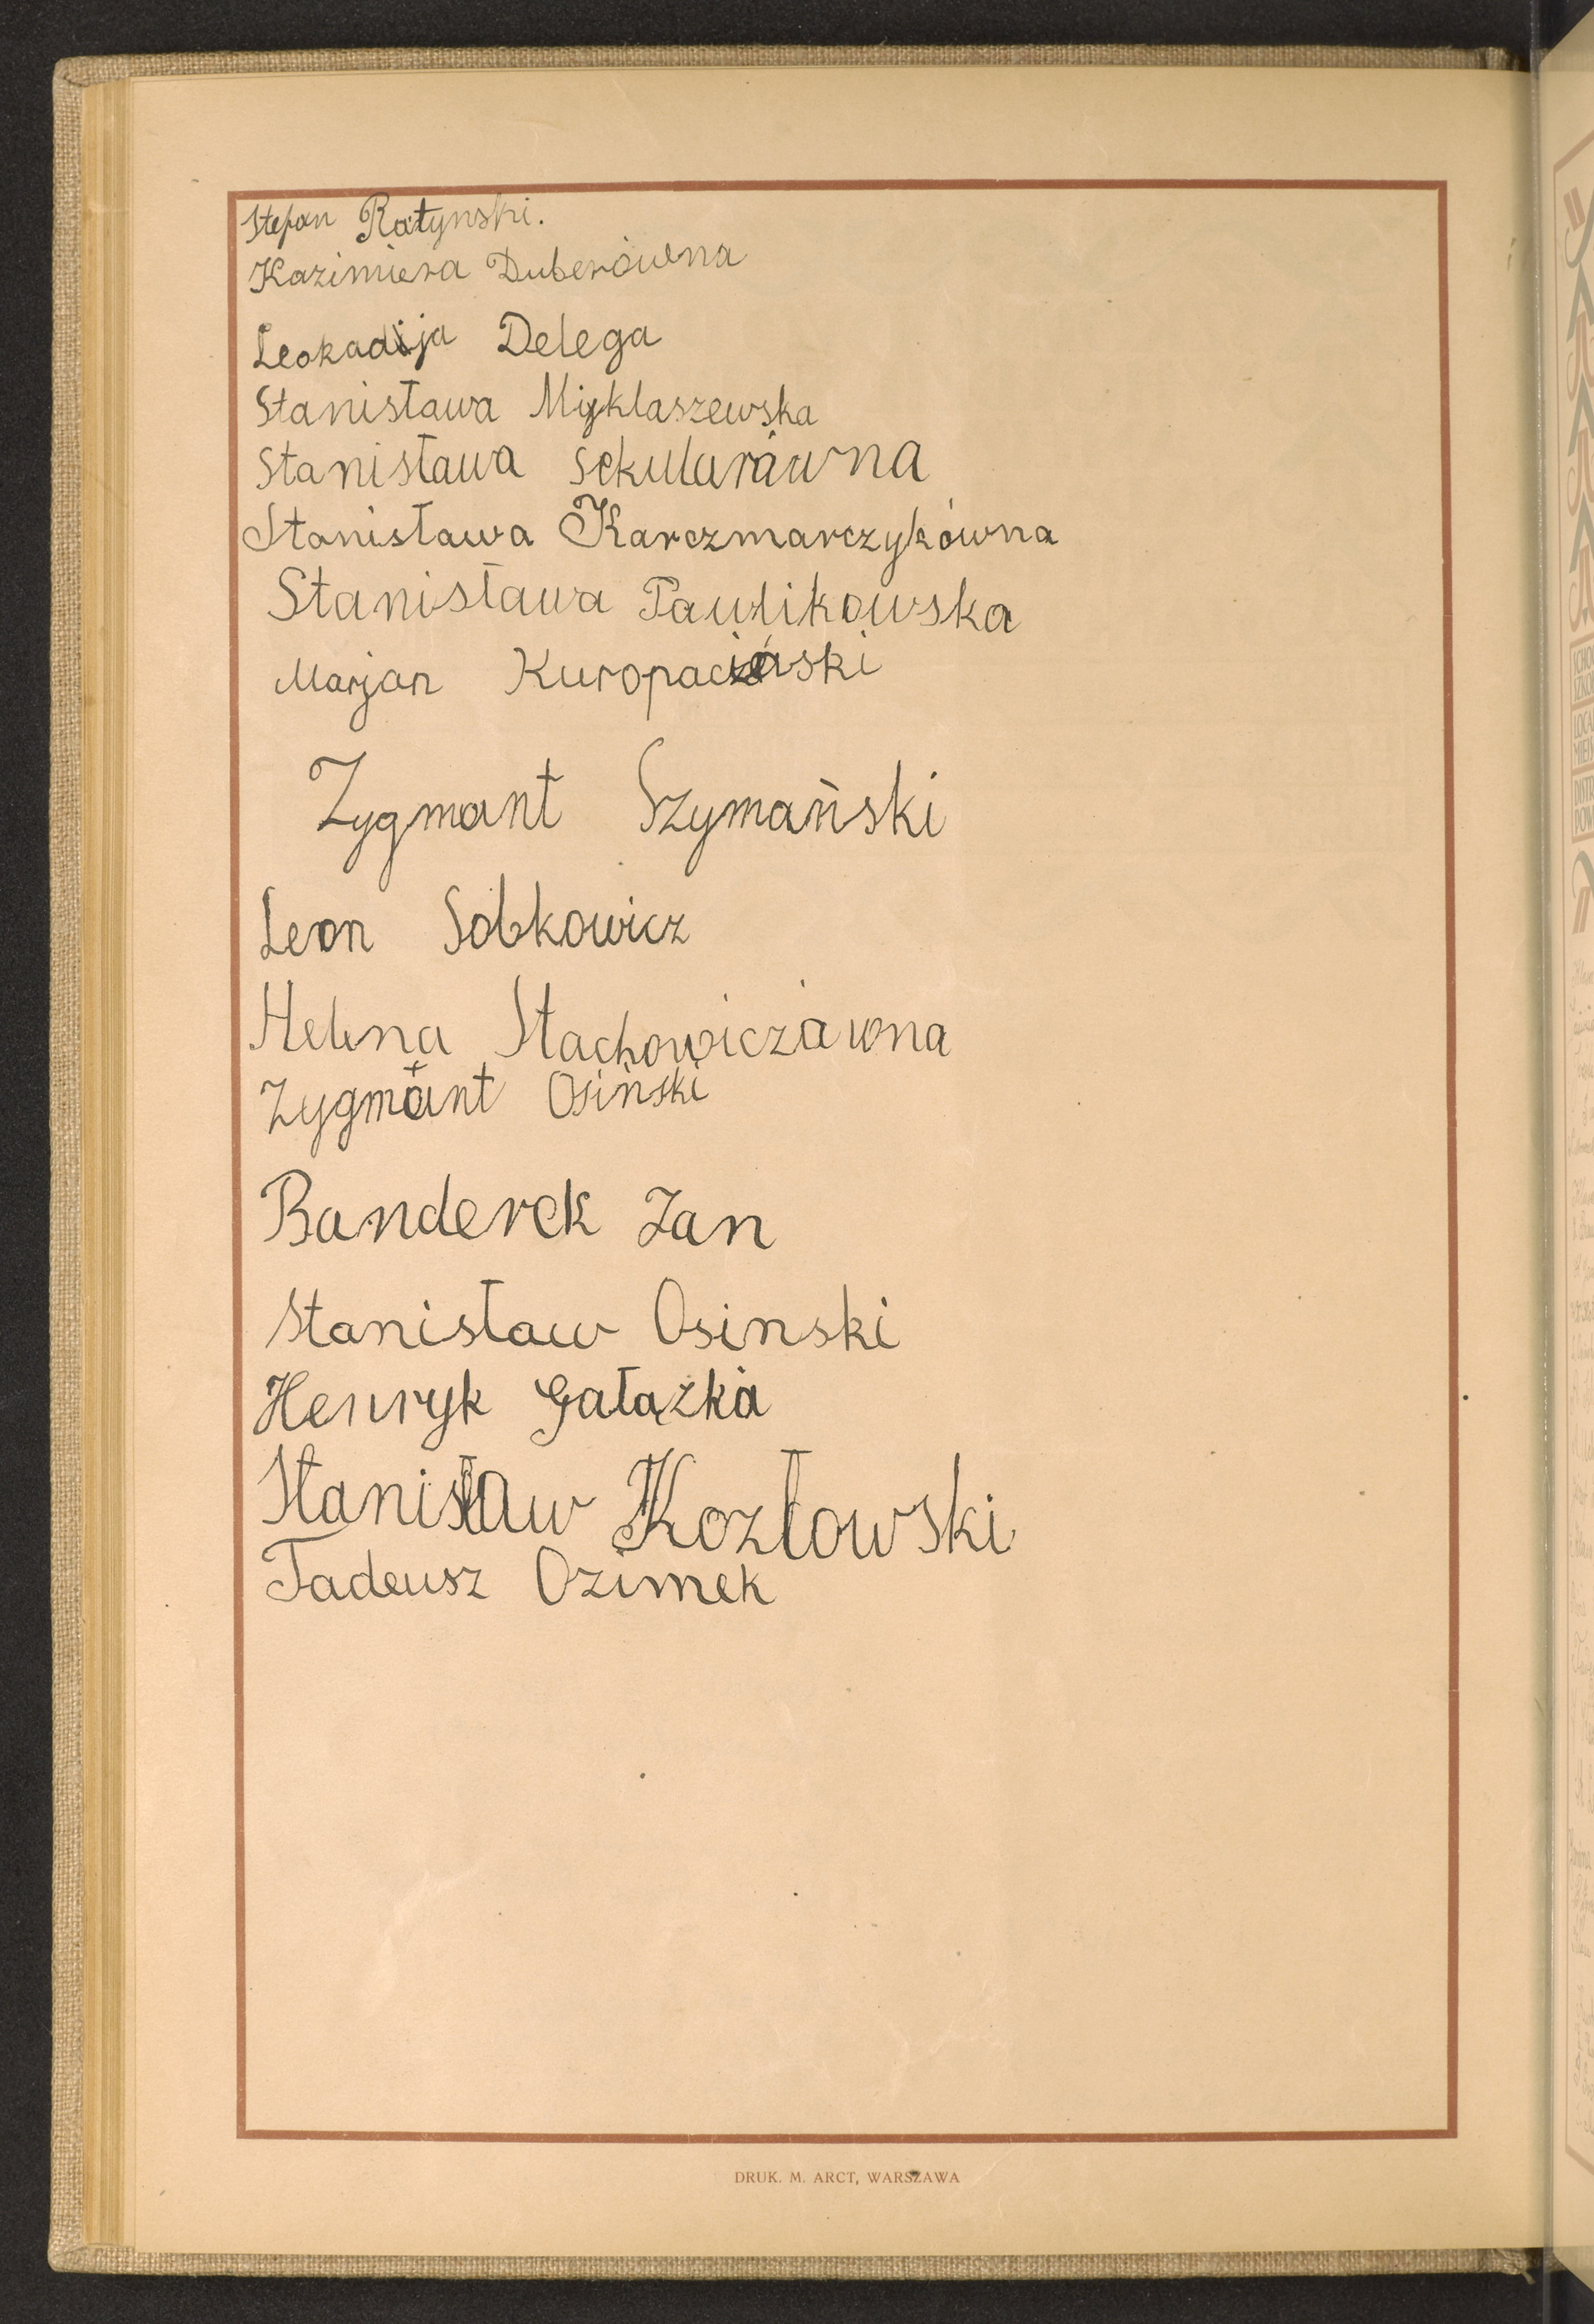 Stefan Ratynski.
Kazimiera Duberówna
Leokadija Delega
Stanisława Miyklaszewska
Stanisława Sekularówna
Stanisława Karczmarczykówna
Stanisława Pawlikowska
Marjan
Zygmant Szymański
Leon Sobkowicz
Helena Stachowiczówna
Zygmant Osiński
Banderek Jan
Stanisław Osinski
Henryk Gałązka
Stanisław Kozłowski
Tadeusz Ozimek
DRUK. M. ARCT, WARSZAWA